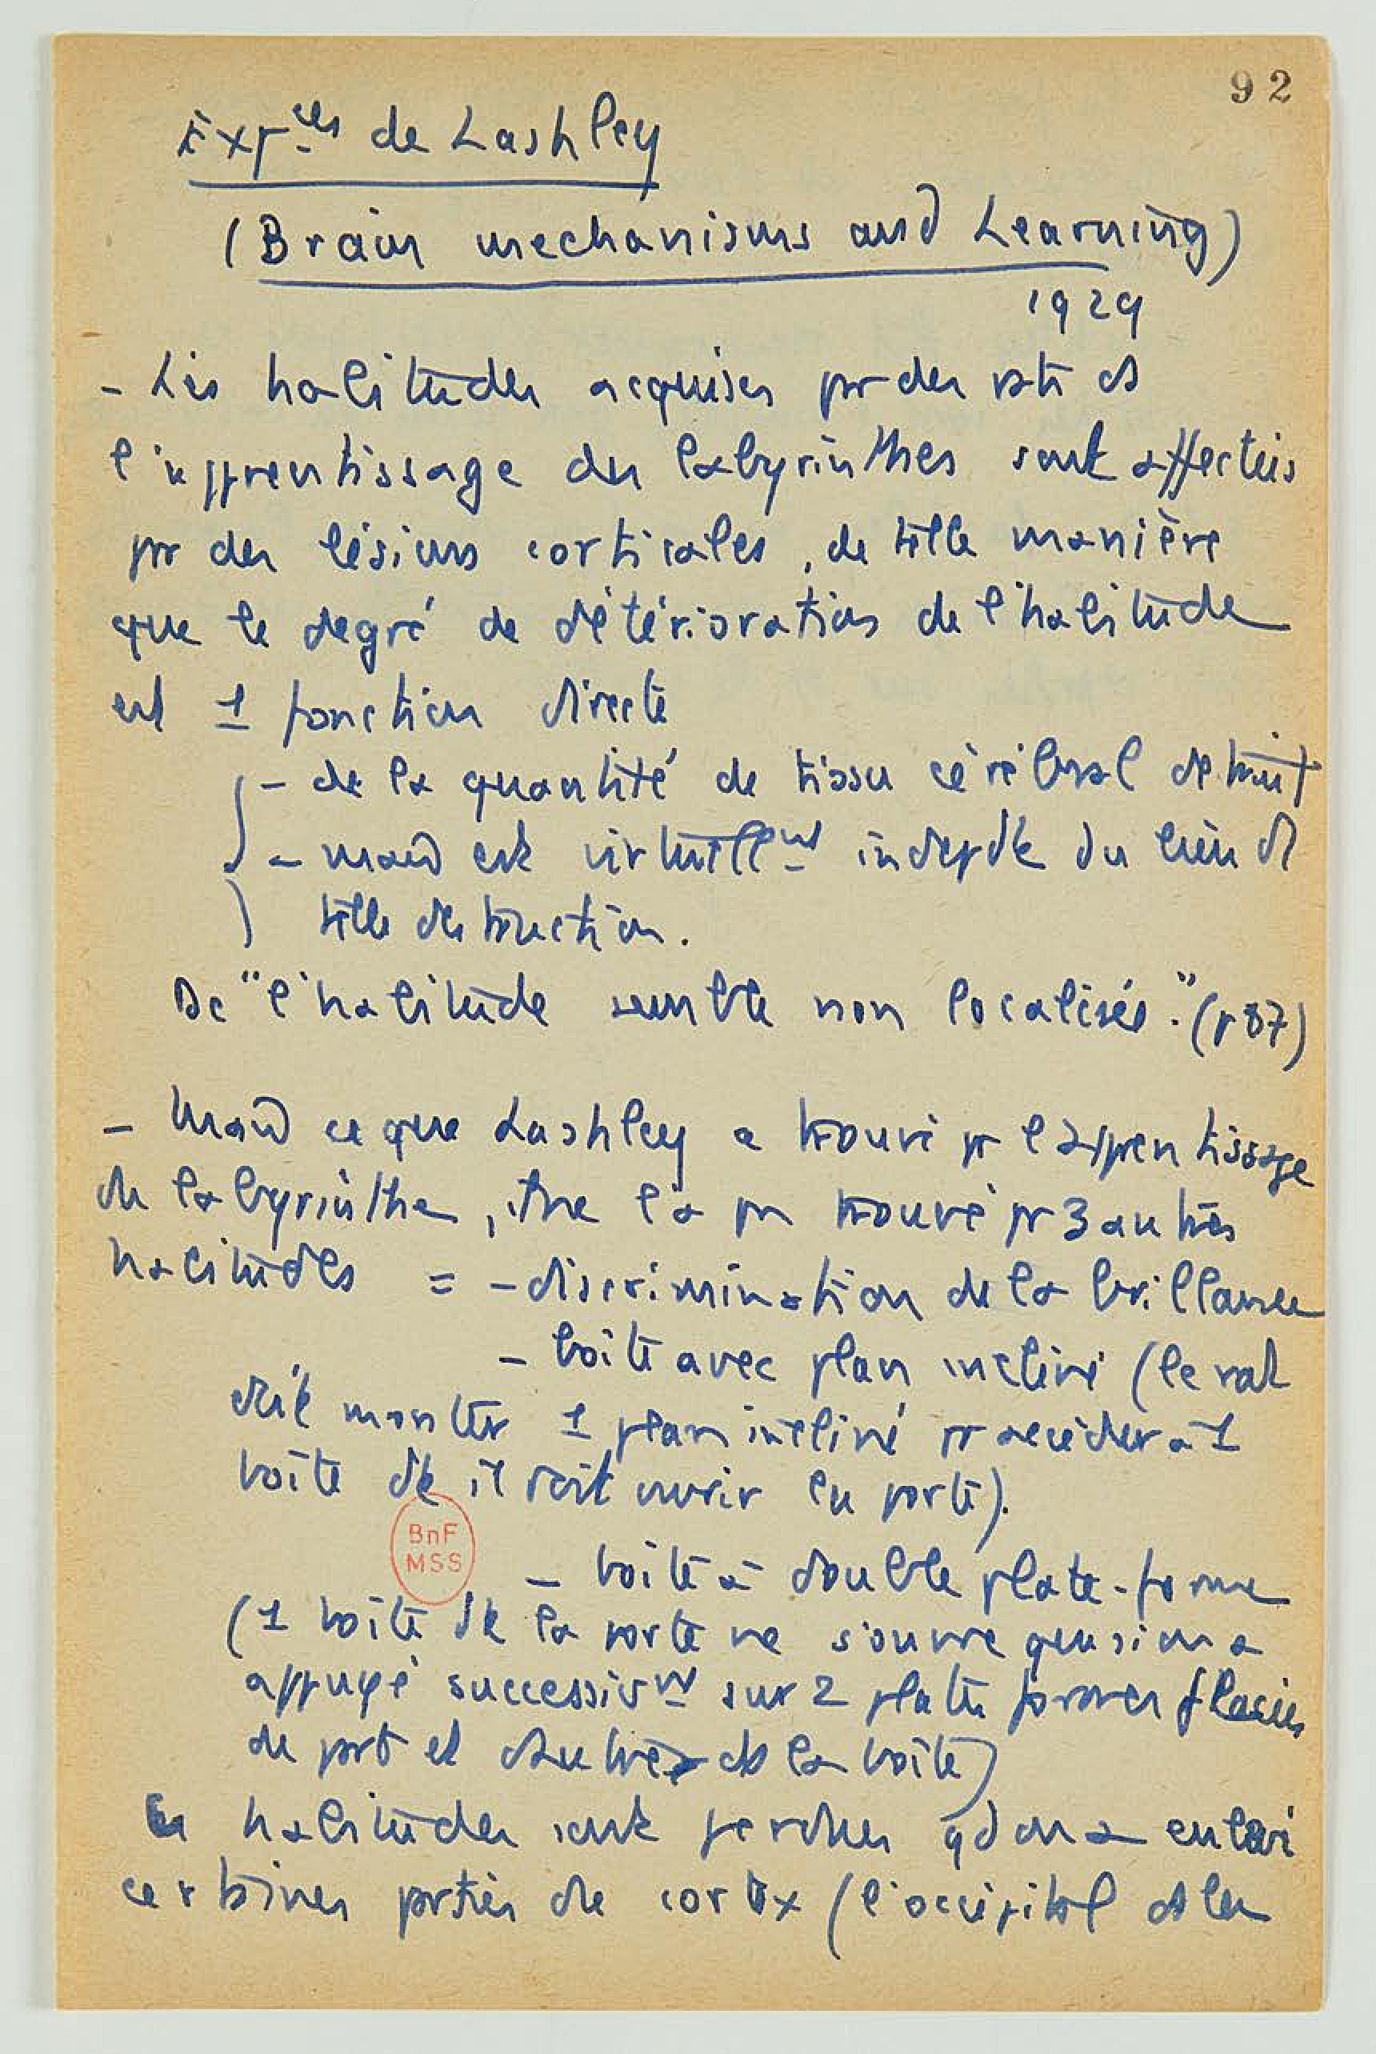 92
Exp^ces de Lashley
(Brain mechanisms and Learning)
1929
- Les habitudes acquises par des rats ds
l'apprentissage des labyrinthes sont affectées
par des lésions corticales, de telle manière
que le degré de détérioration de l'habitude
est 1 fonction directe
- de la quantité de tissu cérébral détruit
- mais est virtuell^mt indepdte du lieu de
telle destruction.
Dc "l'habitude semble non localisée." (p 87)
- Mais ce que Lashley a trouvé pr l'apprentissage
de labyrinthes, il ne l'a pas trouvé pr 3 autres
habitudes = - discrimination de la brillance
- boîte avec plan incliné (le rat
doit monter 1 plan incliné pr accéder à 1
boîte dt il doit ouvrir la porte).
BnF
MSS
- boîte à double plate-forme
(1 boîte dt la porte ne s'ouvre que si on a
appuyé successiv^mt sur 2 plates formes placées
de part et d'autre de la boîte)
habitudes sont perdues qd on a enlevé
certaines parties du cortex (l'occipital ds les